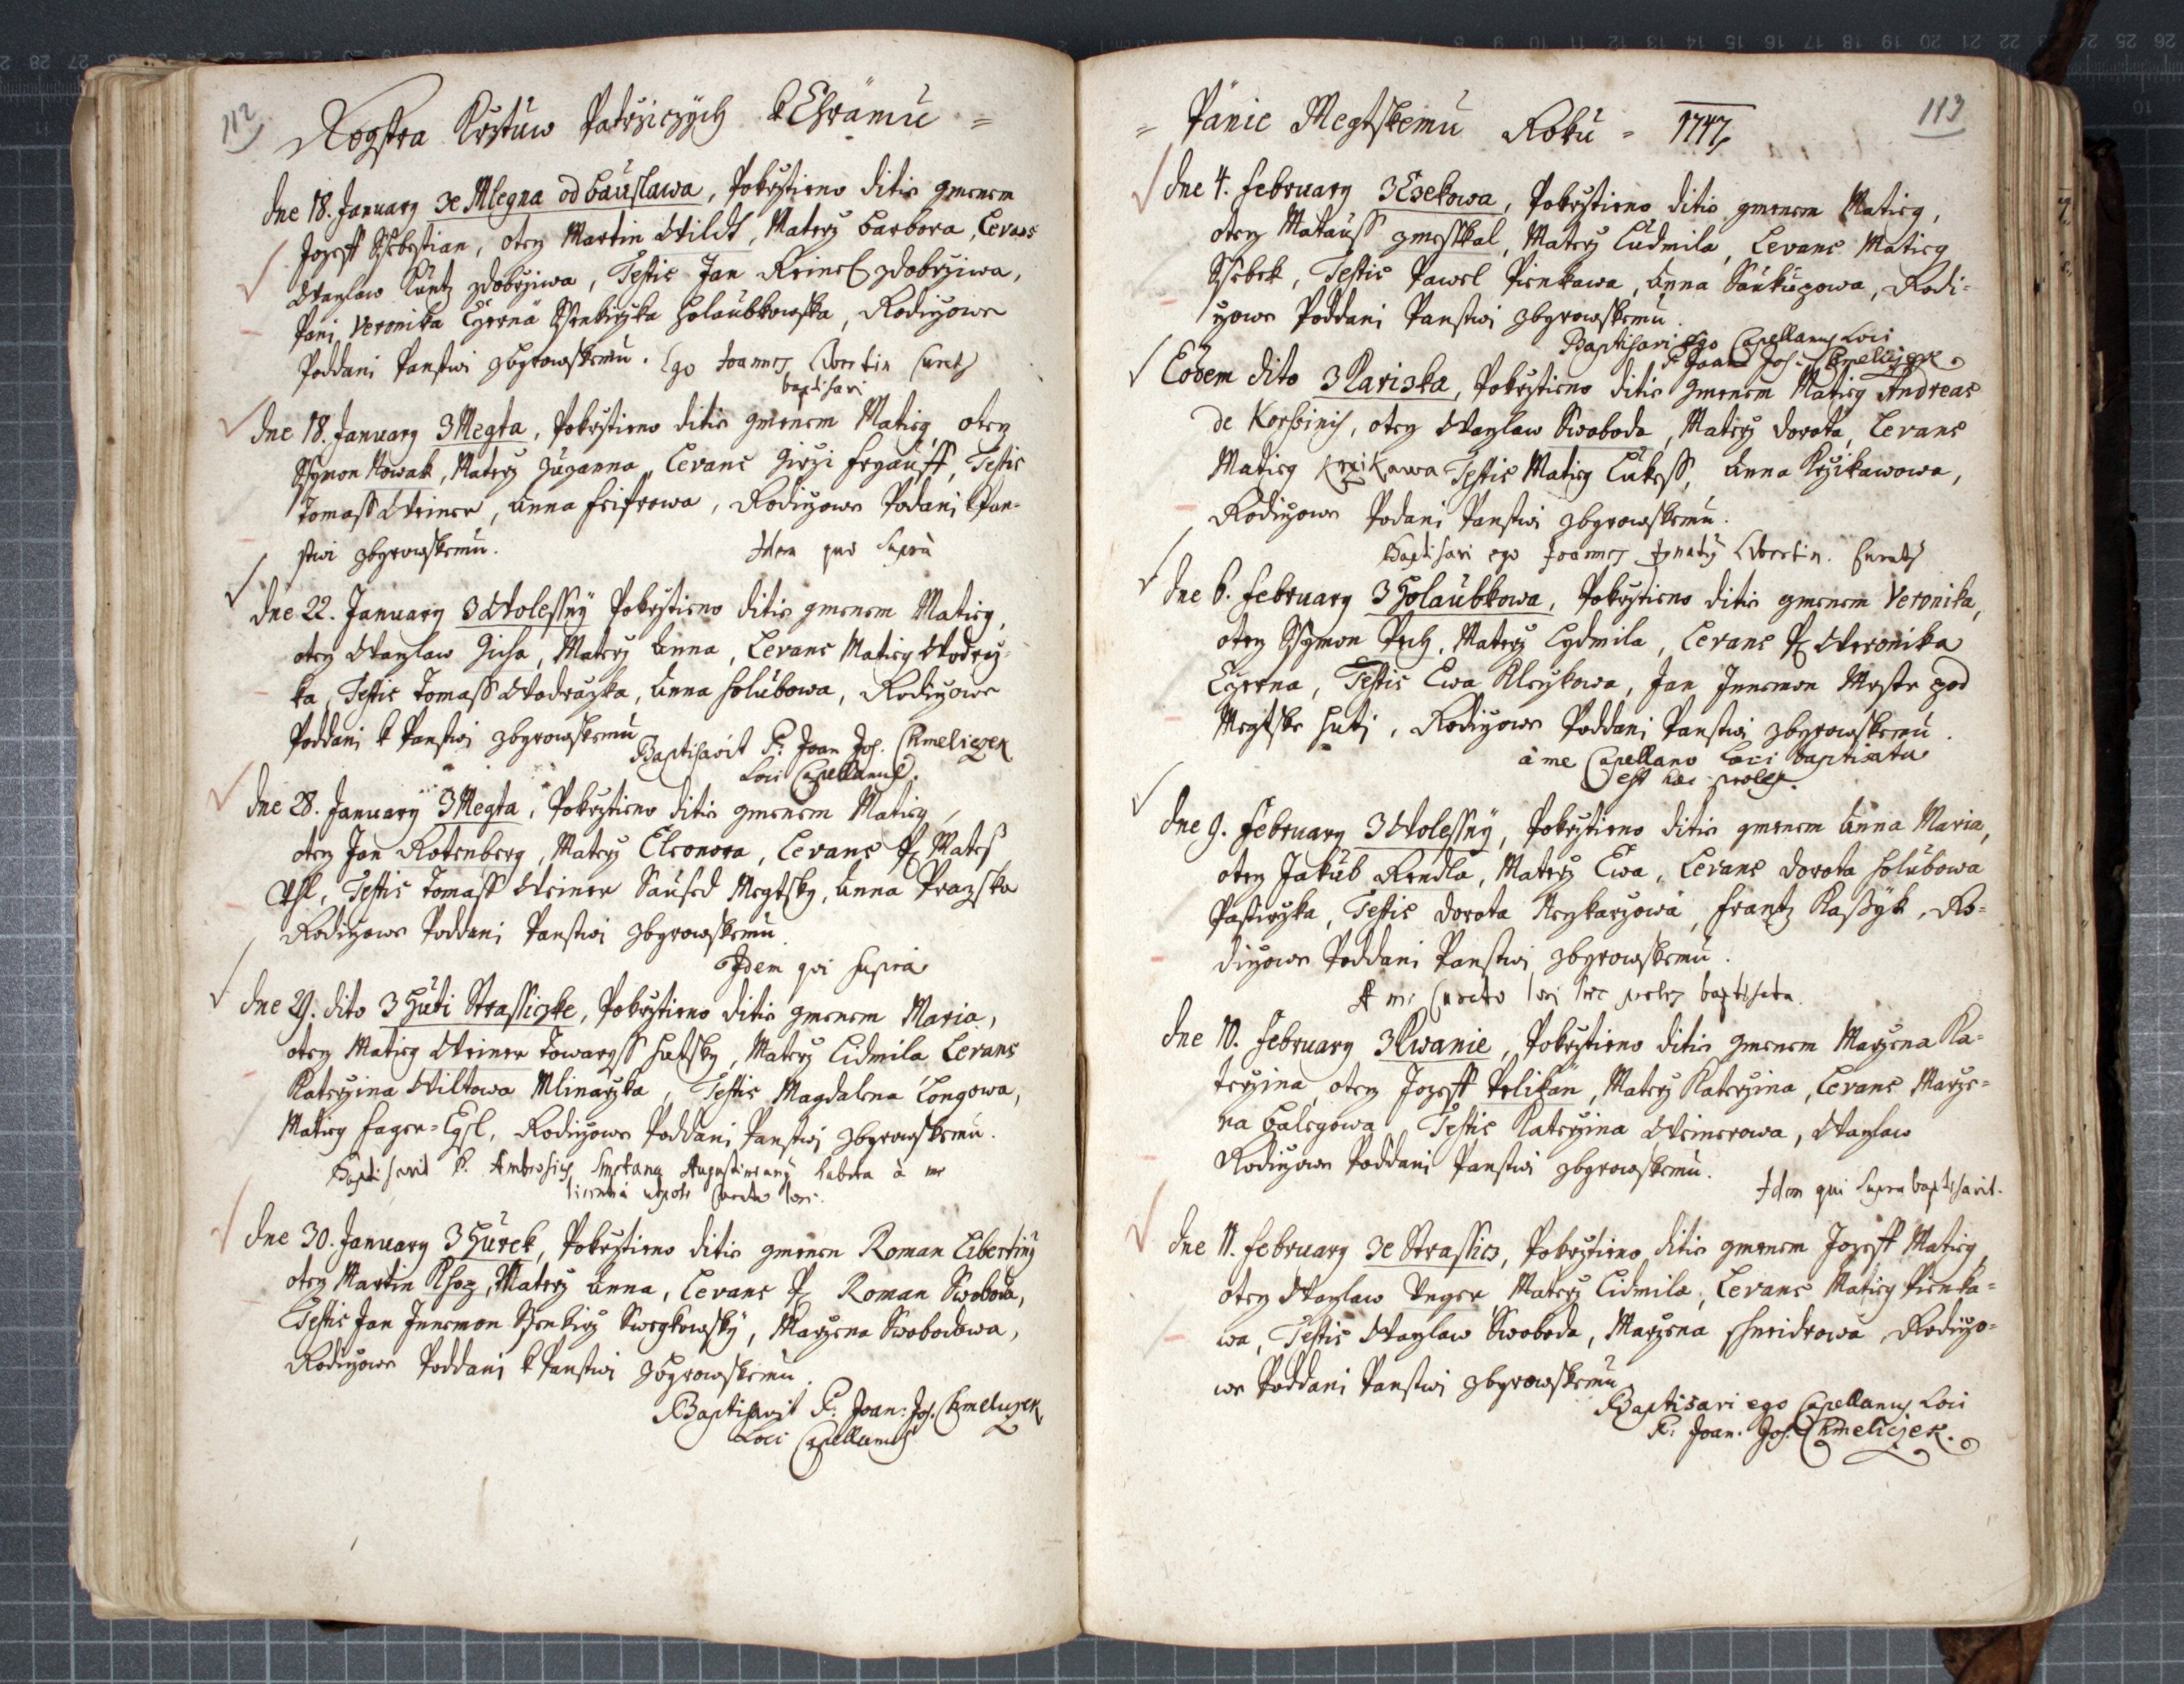 112
Regstra Krztuw Patrziczých k Chrámu =
dne 18. January ze Mlegna od Bauslawa, Pokrztieno ditie gmenem
Jozeff Ssebestian, otecz Martin Wildt, Materz Barbora, Levans
Waczlaw Kuntz zdobrziwa, Testis Jan Reinel zdobrziwa,
Pani Veronika Czerna Ssenkirzka Holaubkowska, Rodiczowe
Poddani Panstwi zbyrowskemu. Ego Joannes Curatus
baptisavi
dne 18. January z Megta, Pokrztieno ditie gmenem Matieg, otecz
Ssymon Nowak, Materz Zuzanna, Levans Girzi, Testis
Tomass Weiner, Anna, Rodiczowe Podani k Pan-
stwi zbyrowskemu.
Idem qui supra
dne 22. January z Wolessný Pokrztieno ditie gmenem Matieg,
otecz Waczlaw Gicha, Materz Anna, Levans Matieg Wodraz-
ka, Testis Tomass Wodrazka, Anna Holubowa, Rodiczowe
Poddani k Panstwi zbyrowskemu
Baptisavit P: Joan Jos. Chmeliczek
Loci Capellanus.
dne 28. January z Megta, Pokrztieno ditie gmenem Matieg,
otecz Jan Rotenberg, Materz Eleonora, Levans P. Mates
Testis Tomass Weiner Saused Megtsky, Anna Prazska
Rodiczowe Poddani Panstwi zbyrowskemu.
Idem qvi supra
dne 29. dito z Huti Strassiczke, Pokrztieno ditie gmenem Maria,
otecz Matieg Weiner Towaryss hutsky, Materz Lidmila Levans
Katerzina Wiltowa Mlinarzka, Testis Magdalena Longowa,
Matieg Fager=Egsl, Rodiczowe Poddani Panstwi zbyrowskemu.
Baptisavit P. Ambrosius Smetana Augustinianus habita à me
licentia utpote Curato loci.
dne 30. January z Hurek, Pokrztieno ditie gmenem Roman Libertiny
otecz Martin Khoz, Materz Anna, Levans P. Roman Swoboda,
Testis Jan Inneman Ssenkirz Sweykowský, Marzena Swobodowa,
Rodiczowe Poddani k Panstwi zbyrowskemu.
Baptisavit P: Joan: Jos. Chmeliczek
Loci Capellanus
113
= Pánie Megtskemu Roku = 1747
dne 4. February z Czekowa, Pokrztieno ditie gmenem Matieg,
otecz Matauss zmesskal, Materz Ludmila, Levans Matieg
Ssebek, Testis Pawel Pienkawa, Anna Saukupowa, Rodi-
czowe Poddani Panstwi zbyrowskemu.
Baptisavi ego Capellanus Loci
P Joan Jos: Chmeliczek
Eodem dito z Karizka, Pokrztieno ditie gmenem Matieg Andreas
de Korssinis, otecz Waczlaw Swoboda, Materz Dorota, Levans
Matieg Krzikawa Testis Matieg Lukess, Anna Krzikawowa,
Rodiczowe Podani Panstwi zbyrowskemu.
Baptisavi ego Joannes Ignatius Curatus
dne 6. February z Holaubkowa, Pokrztieno ditie gmenem Veronika,
otecz Ssymon Pech, Materz Lydmila, Levans P. Weronika
Czerna, Testis Ewa Kleczkowa, Jan Inneman Mestr pod
Megtske Huti, Rodiczowe Poddani Panstwi zbyrowskemu.
à me Capellano Loci baptisata
est haec proles.
dne 9. February z Wolessný, Pokrztieno ditie gmenem Anna Maria,
otecz Jakub Rendla, Materz Ewa, Levans Dorota Holubowa
Pastirzka, Testis Dorota, Frantz Kassyk, Ro-
diczowe Poddani Panstwi zbyrowskemu.
A me Curato loci haec proles baptisata.
dne 10. February z Kwanie, Pokrztieno ditie gmenem Marzena Ka-
terzina, otecz Jozeff Pelikan, Materz Katerzina, Levans Marze-
na Balegowa, Testis Katerzina Weinerowa, Waczlaw
Rodiczowe Poddani Panstwi zbyrowskemu.
Idem qui supra baptisavit.
dne 11. February ze Strassicz, Pokrztieno ditie gmenem Jozeff Matieg,
otecz Waczlaw Unger, Materz Lidmila, Levans Matieg Pienka-
wa, Testis Waczlaw Swoboda, Marzena Shneidrowa, Rodiczo-
we Poddani Panstwi zbyrowskemu
Baptisavi ego Capellanus Loci
P: Joan. Jos. Chmeliczek.